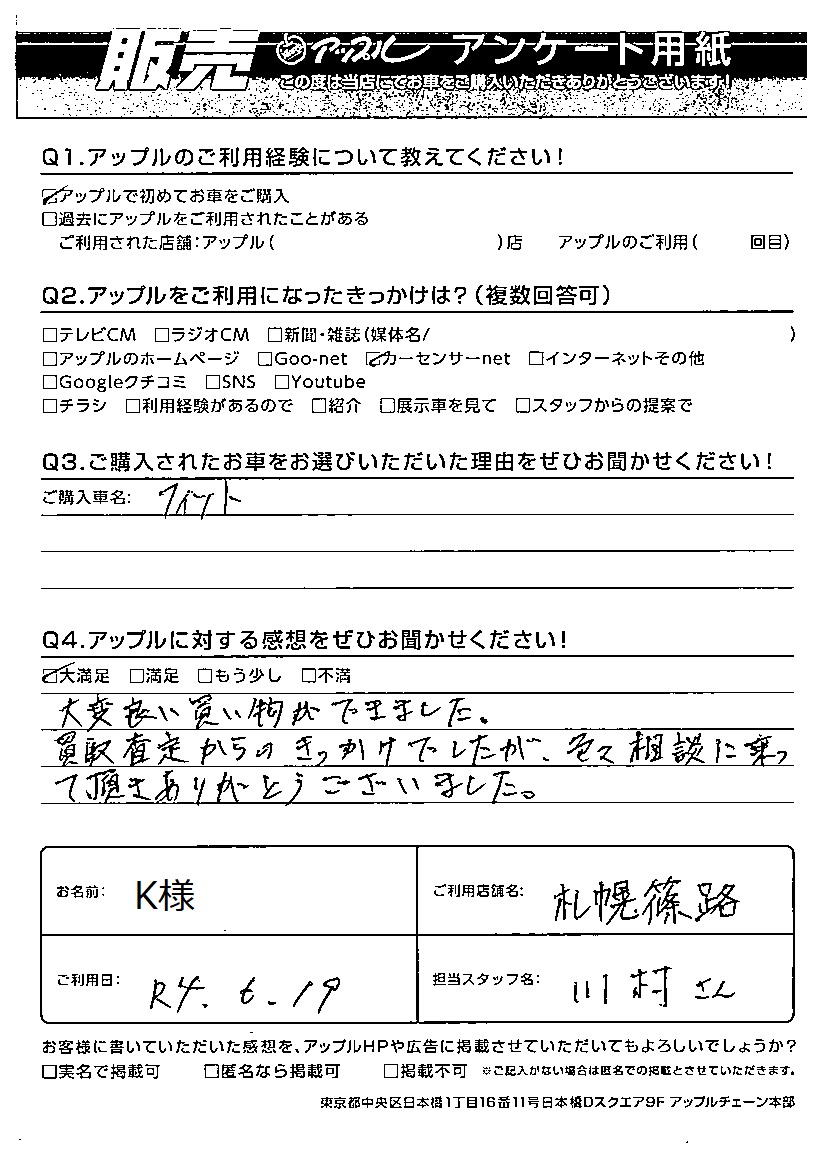 販売 アップル アンケート用紙
この度は当店にてお車をご購入いただきありがとうございます！
Q1.アップルのご利用経験について教えてください！
☑アップルで初めてお車をご購入
□過去にアップルをご利用されたことがある
ご利用された店舗：アップル（ ）店 アップルのご利用（ 回目）
Q2.アップルをご利用になったきっかけは？（複数回答可）
□テレビCM □ラジオCM □新聞・雑誌（媒体名/ ）
□アップルのホームページ □Goo-net ☑カーセンサーnet □インターネットその他
□Googleクチコミ □SNS □Youtube
□チラシ □利用経験があるので □紹介 □展示車を見て □スタッフからの提案で
Q3.ご購入されたお車をお選びいただいた理由をぜひお聞かせください！
ご購入車名： フィット
Q4.アップルに対する感想をぜひお聞かせください！
☑大満足 □満足 □もう少し □不満
大変良い買い物ができました。
買取査定からのきっかけでしたが、色々相談に乗っ
て頂きありがとうございました。
お名前： K様 ご利用店舗名： 札幌篠路
ご利用日： R4.6.19 担当スタッフ名： 川村さん
お客様に書いていただいた感想を、アップルHPや広告に掲載させていただいてもよろしいでしょうか？
□実名で掲載可 □匿名なら掲載可 □掲載不可 ※ご記入がない場合は匿名での掲載とさせていただきます。
東京都中央区日本橋1丁目16番11号日本橋Dスクエア9F アップルチェーン本部